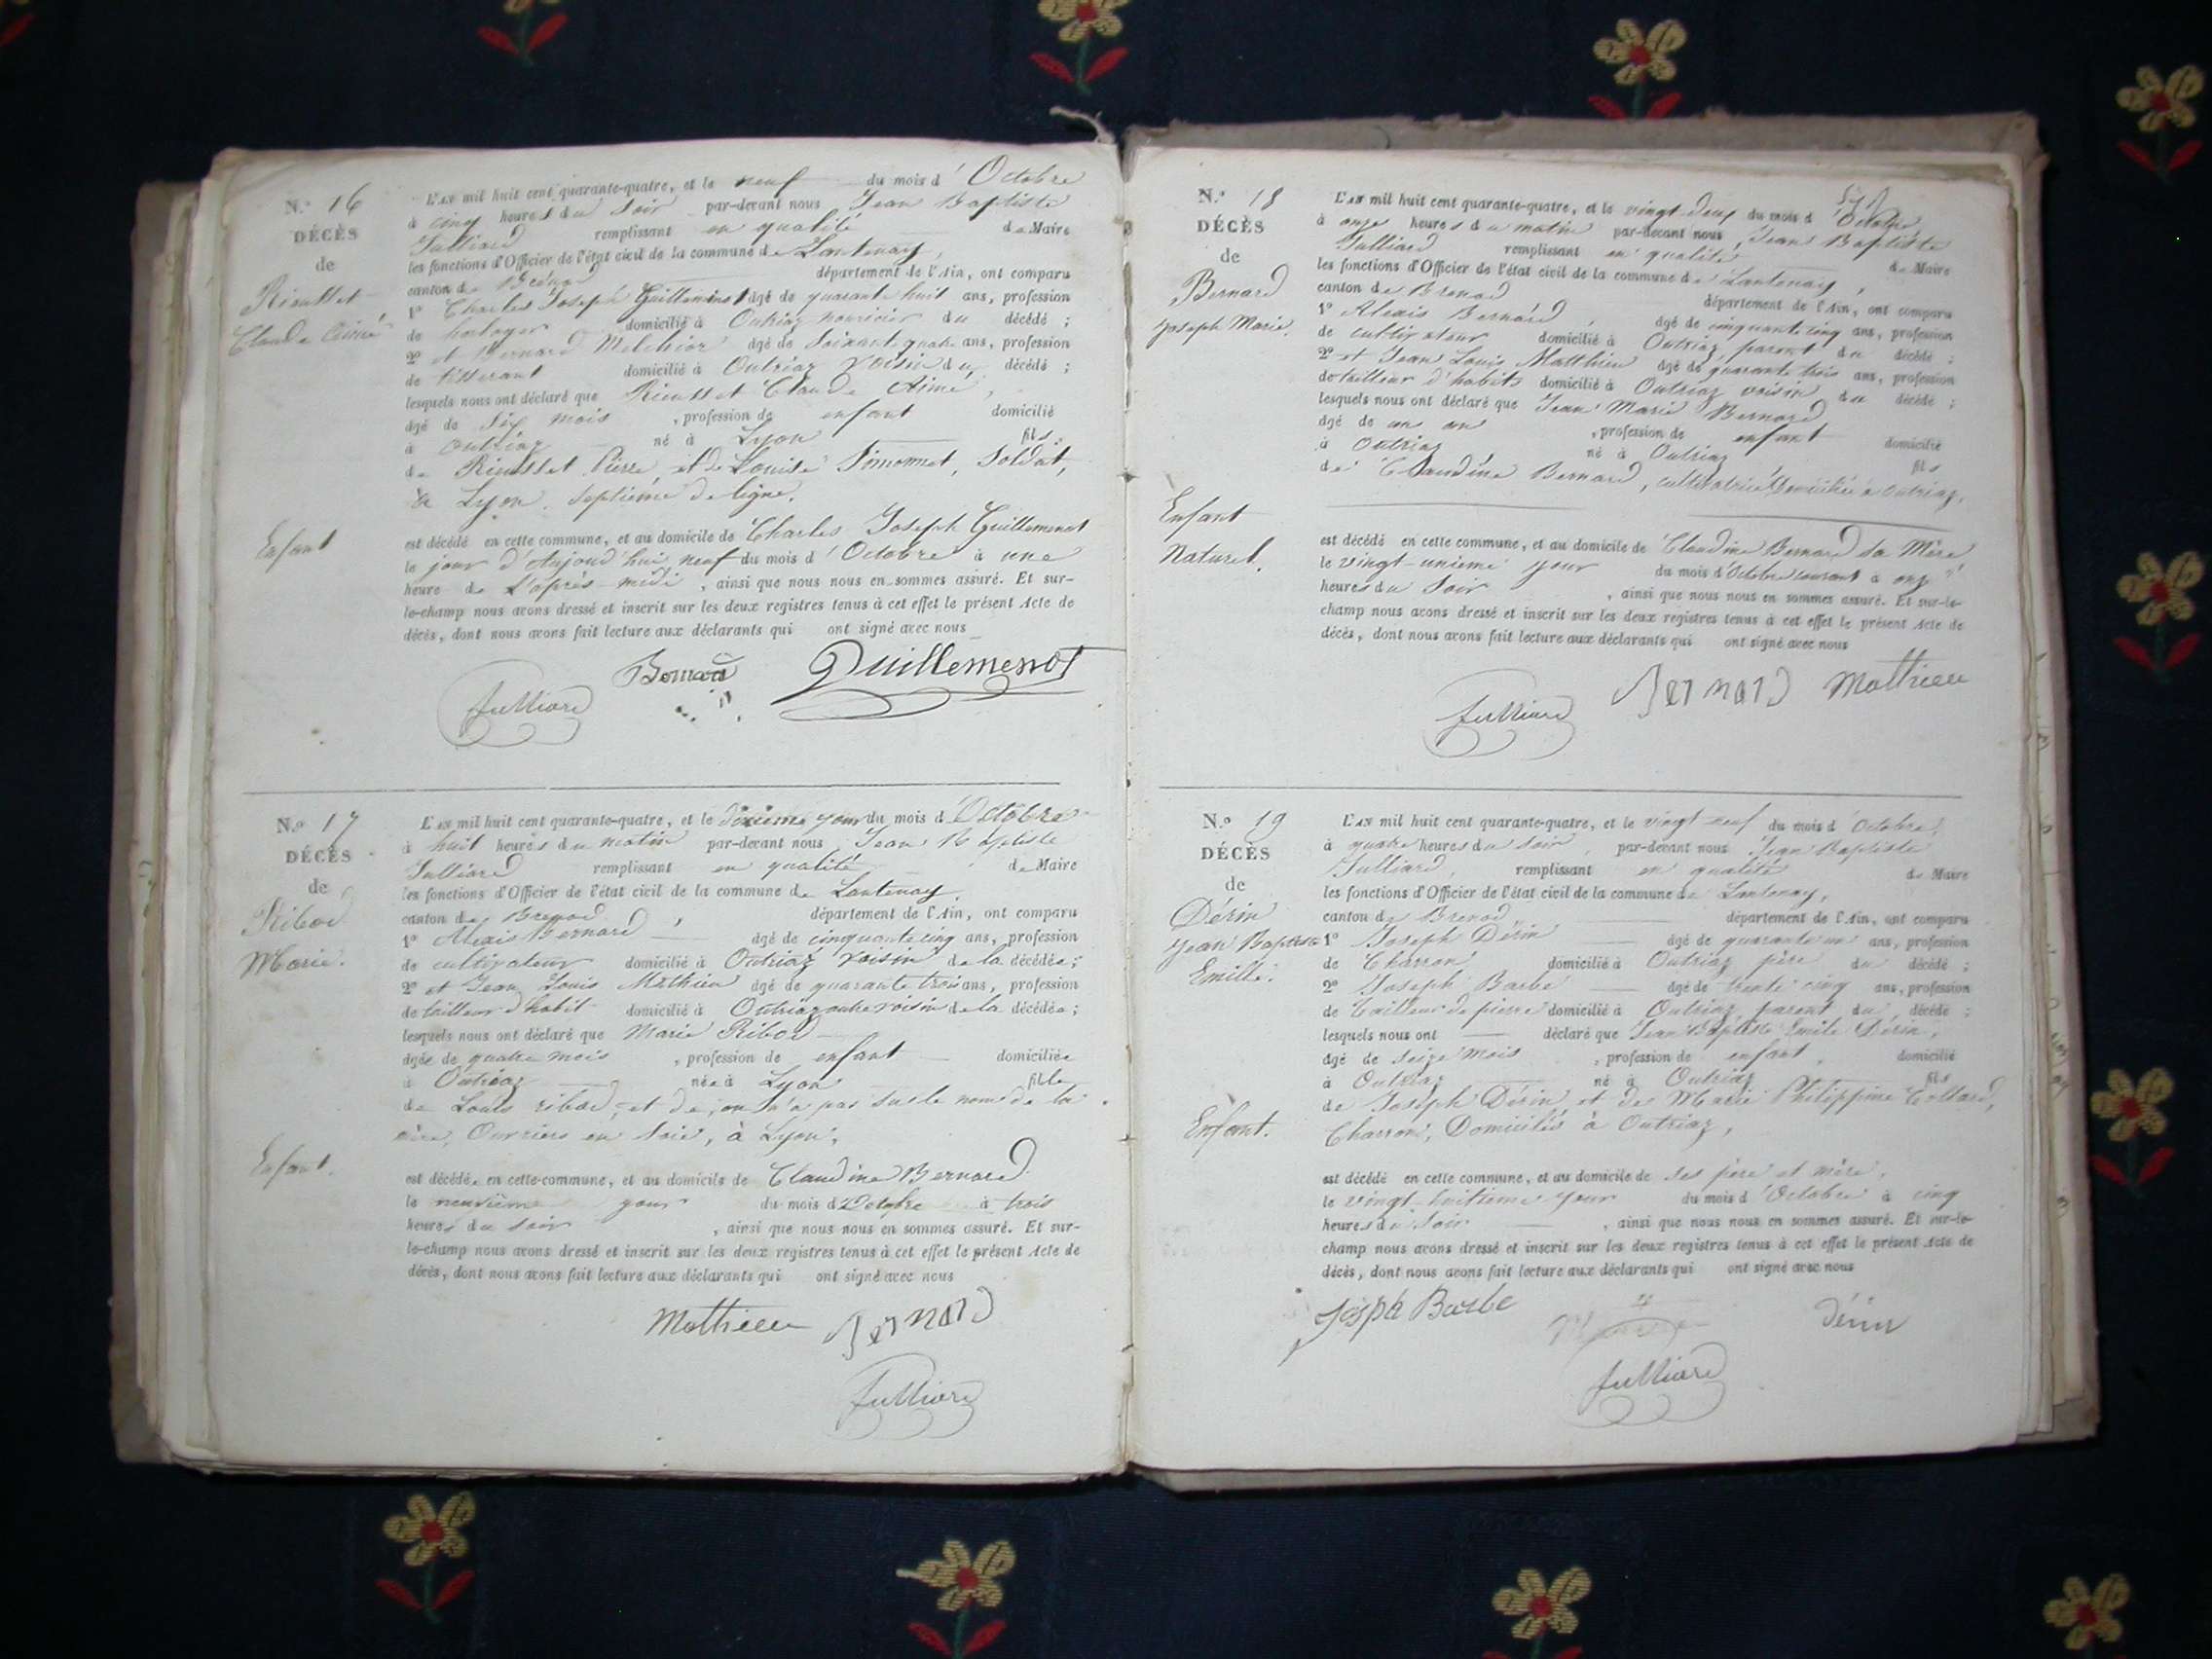 N.° 16
DÉCÈS
de
Rieusset
Claude Aimé
Enfant
L'AN mil huit cent quarante-quatre, et le neuf du mois d'Octobre
à cinq heures du Soir par-devant nous Jean Baptiste
Julliard remplissant en qualité de Maire
les fonctions d'Officier de l'état civil de la commune de Lantenay,
canton de Brénod département de l'Ain, ont comparu
1° Charles Joseph Guillemenot âgé de quarante huit ans, profession
de horloger domicilié à Outriaz nourricier du décédé ;
2° et Bernard Melchior âgé de soixante quatre ans, profession
de tisserant domicilié à Outriaz voisin du décédé ;
lesquels nous ont déclaré que Rieusset Claude Aimé,
âgé de Six mois, profession de enfant domicilié
à Outriaz né à Lyon fils
de Rieusset Pierre et de Louise Simonnet, Soldat,
à Lyon. Septième de ligne.
est décédé en cette commune, et au domicile de Charles Joseph Guillemenot
le jour d'Aujoud'hui neuf du mois d'Octobre à une
heure de L'après-midi, ainsi que nous nous en sommes assuré. Et sur-
le-champ nous avons dressé et inscrit sur les deux registres tenus à cet effet le présent Acte de
décès, dont nous avons fait lecture aux déclarants qui ont signé avec nous
Bernard Guillemenot
Julliard
N.° 17
DÉCÈS
de
Ribod
Marie.
Enfant.
L'AN mil huit cent quarante-quatre, et le dixieme jour du mois d'Octobre
à huit heures du matin par-devant nous Jean Baptiste
Julliard remplissant en qualité de Maire
les fonctions d'Officier de l'état civil de la commune de Lantenay
canton de Brenod département de l'Ain, ont comparu
1° Alexis Bernard âgé de cinquante cinq ans, profession
de cultivateur domicilié à Outriaz voisin de la décédée ;
2° et Jean Louis Mathieu âgé de quarante trois ans, profession
de tailleur d'habit domicilié à Outriaz autre voisin de la décédée ;
lesquels nous ont déclaré que Marie Ribod
âgée de quatre mois, profession de enfant domiciliée
à Outriaz née à Lyon fille
de Louis ribod, et de, on n'a pas su le nom de la
mère, Ouvriers en Soie, à Lyon,
est décédée en cette commune, et au domicile de Claudine Bernard
le neuvième jour du mois d'Octobre à trois
heures du soir, ainsi que nous nous en sommes assuré. Et sur-
le-champ nous avons dressé et inscrit sur les deux registres tenus à cet effet le présent Acte de
décès, dont nous avons fait lecture aux déclarants qui ont signé avec nous
Mathieu Bernard
Julliard
N.° 18
DÉCÈS
de
Bernard
Joseph Marie.
Enfant
Naturel.
L'AN mil huit cent quarante-quatre, et le vingt-deux du mois d'Octobre
à onze heures du matin par-devant nous, Jean Baptiste
Julliard remplissant en qualité de Maire
les fonctions d'Officier de l'état civil de la commune de Lantenay,
canton de Brenod département de l'Ain, ont comparu
1° Alexis Bernard, âgé de cinquante cinq ans, profession
de cultivateur domicilié à Outriaz, parent du décédé ;
2° et Jean Louis Matthieu âgé de quarante trois ans, profession
de tailleur d'habits domicilié à Outriaz voisin du décédé ;
lesquels nous ont déclaré que Jean Marie Bernard
âgé de un an, profession de enfant domicilié
à Outriaz né à Outriaz fils
de Claudine Bernard, cultivatrice Domiciliée à Outriaz,
est décédé en cette commune, et au domicile de Claudine Bernard sa Mère
le vingt-unieme jour du mois d'Octobre courant à onze
heures du Soir, ainsi que nous nous en sommes assuré. Et sur-le-
champ nous avons dressé et inscrit sur les deux registres tenus à cet effet le présent Acte de
décès, dont nous avons fait lecture aux déclarants qui ont signé avec nous
Bernard Mathieu
Julliard
N.° 19
DÉCÈS
de
Dérin
Jean Baptiste
Emille.
Enfant.
L'AN mil huit cent quarante-quatre, et le vingt-neuf du mois d'Octobre,
à quatre heures du Soir, par-devant nous Jean Baptiste
Julliard, remplissant en qualité de Maire
les fonctions d'Officier de l'état civil de la commune de Lantenay,
canton de Brenod département de l'Ain, ont comparu
1° Joseph Dérin âgé de quarante un ans, profession
de Charron domicilié à Outriaz père du décédé ;
2° Joseph Barbe âgé de trente cinq ans, profession
de Tailleur de pierre domicilié à Outriaz, parent du décédé ;
lesquels nous ont déclaré que Jean Baptiste Emile Dérin,
âgé de seize mois, profession de enfant, domicilié
à Outriaz né à Outriaz fils
de Joseph Dérin et de Marie Philippine Collard,
Charron, Domiciliés à Outriaz,
est décédé en cette commune, et au domicile de ses père et mère,
le vingt-huitieme jour du mois d'Octobre à cinq
heures du Soir, ainsi que nous nous en sommes assuré. Et sur-le-
champ nous avons dressé et inscrit sur les deux registres tenus à cet effet le présent Acte de
décès, dont nous avons fait lecture aux déclarants qui ont signé avec nous
Josph Barbe Dérin
Julliard